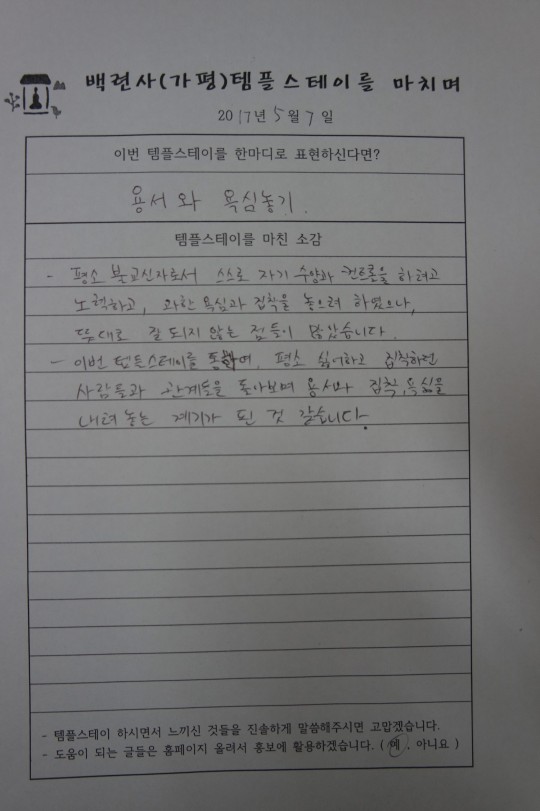 백련사(가평)템플스테이를 마치며
2017년 5월 7일
이번 템플스테이를 한마디로 표현하신다면?
용서와 욕심놓기.
템플스테이를 마친 소감
- 평소 불교신자로서 스스로 자기 수양과 컨트롤을 하려고
노력하고, 과한 욕심과 집착을 놓으려 하였으나,
뜻대로 잘 되지 않는 점들이 많았습니다.
- 이번 템플스테이를 통하여, 평소 싫어하고 집착하던
사람들과 관계들을 돌아보며 용서와 집착, 욕심을
내려 놓는 계기가 된 것 같습니다.
- 템플스테이 하시면서 느끼신 것들을 진솔하게 말씀해주시면 고맙겠습니다.
- 도움이 되는 글들은 홈페이지 올려서 홍보에 활용하겠습니다. ( 예 , 아니요 )